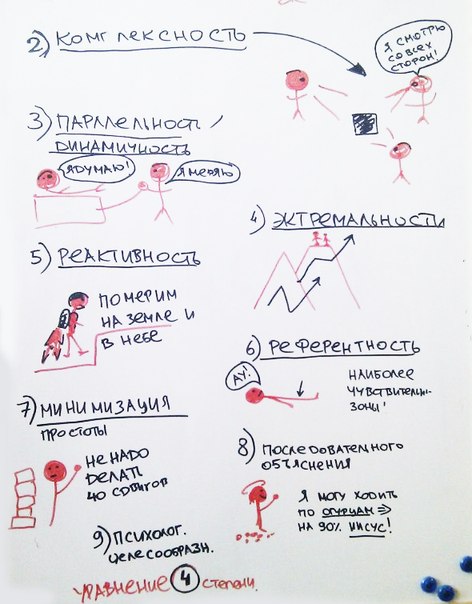 2) КОМПЛЕКСНОСТЬ
Я СМОТРЮ
СО ВСЕХ
СТОРОН!
3) ПАРЛЛЕЛЬНОСТЬ /
ДИНАМИЧНОСТЬ
Я ДУМАЮ!
Я МЕРЯЮ
4) ЭКТРЕМАЛЬНОСТИ
5) РЕАКТИВНОСТЬ
ПОМЕРИМ
НА ЗЕМЛЕ И
В НЕБЕ
6) РЕФЕРЕНТНОСТЬ
АУ!
НАИБОЛЕЕ
ЧУВСТВИТЕЛЬН.
ЗОНЫ!
7) МИНИМИЗАЦИЯ
ПРОСТОТЫ
НЕ НАДО
ДЕЛАТЬ
40 СДВИГОВ
8) ПОСЛЕДОВАТЕЛЬНОГО
ОБЪЯСНЕНИЯ
Я МОГУ ХОДИТЬ
ПО ОГУРЦАМ ⇒
НА 90% ИИСУС!
9) ПСИХОЛОГ.
ЦЕЛЕСООБРАЗН.
УРАВНЕНИЕ 4 СТЕПЕНИ.